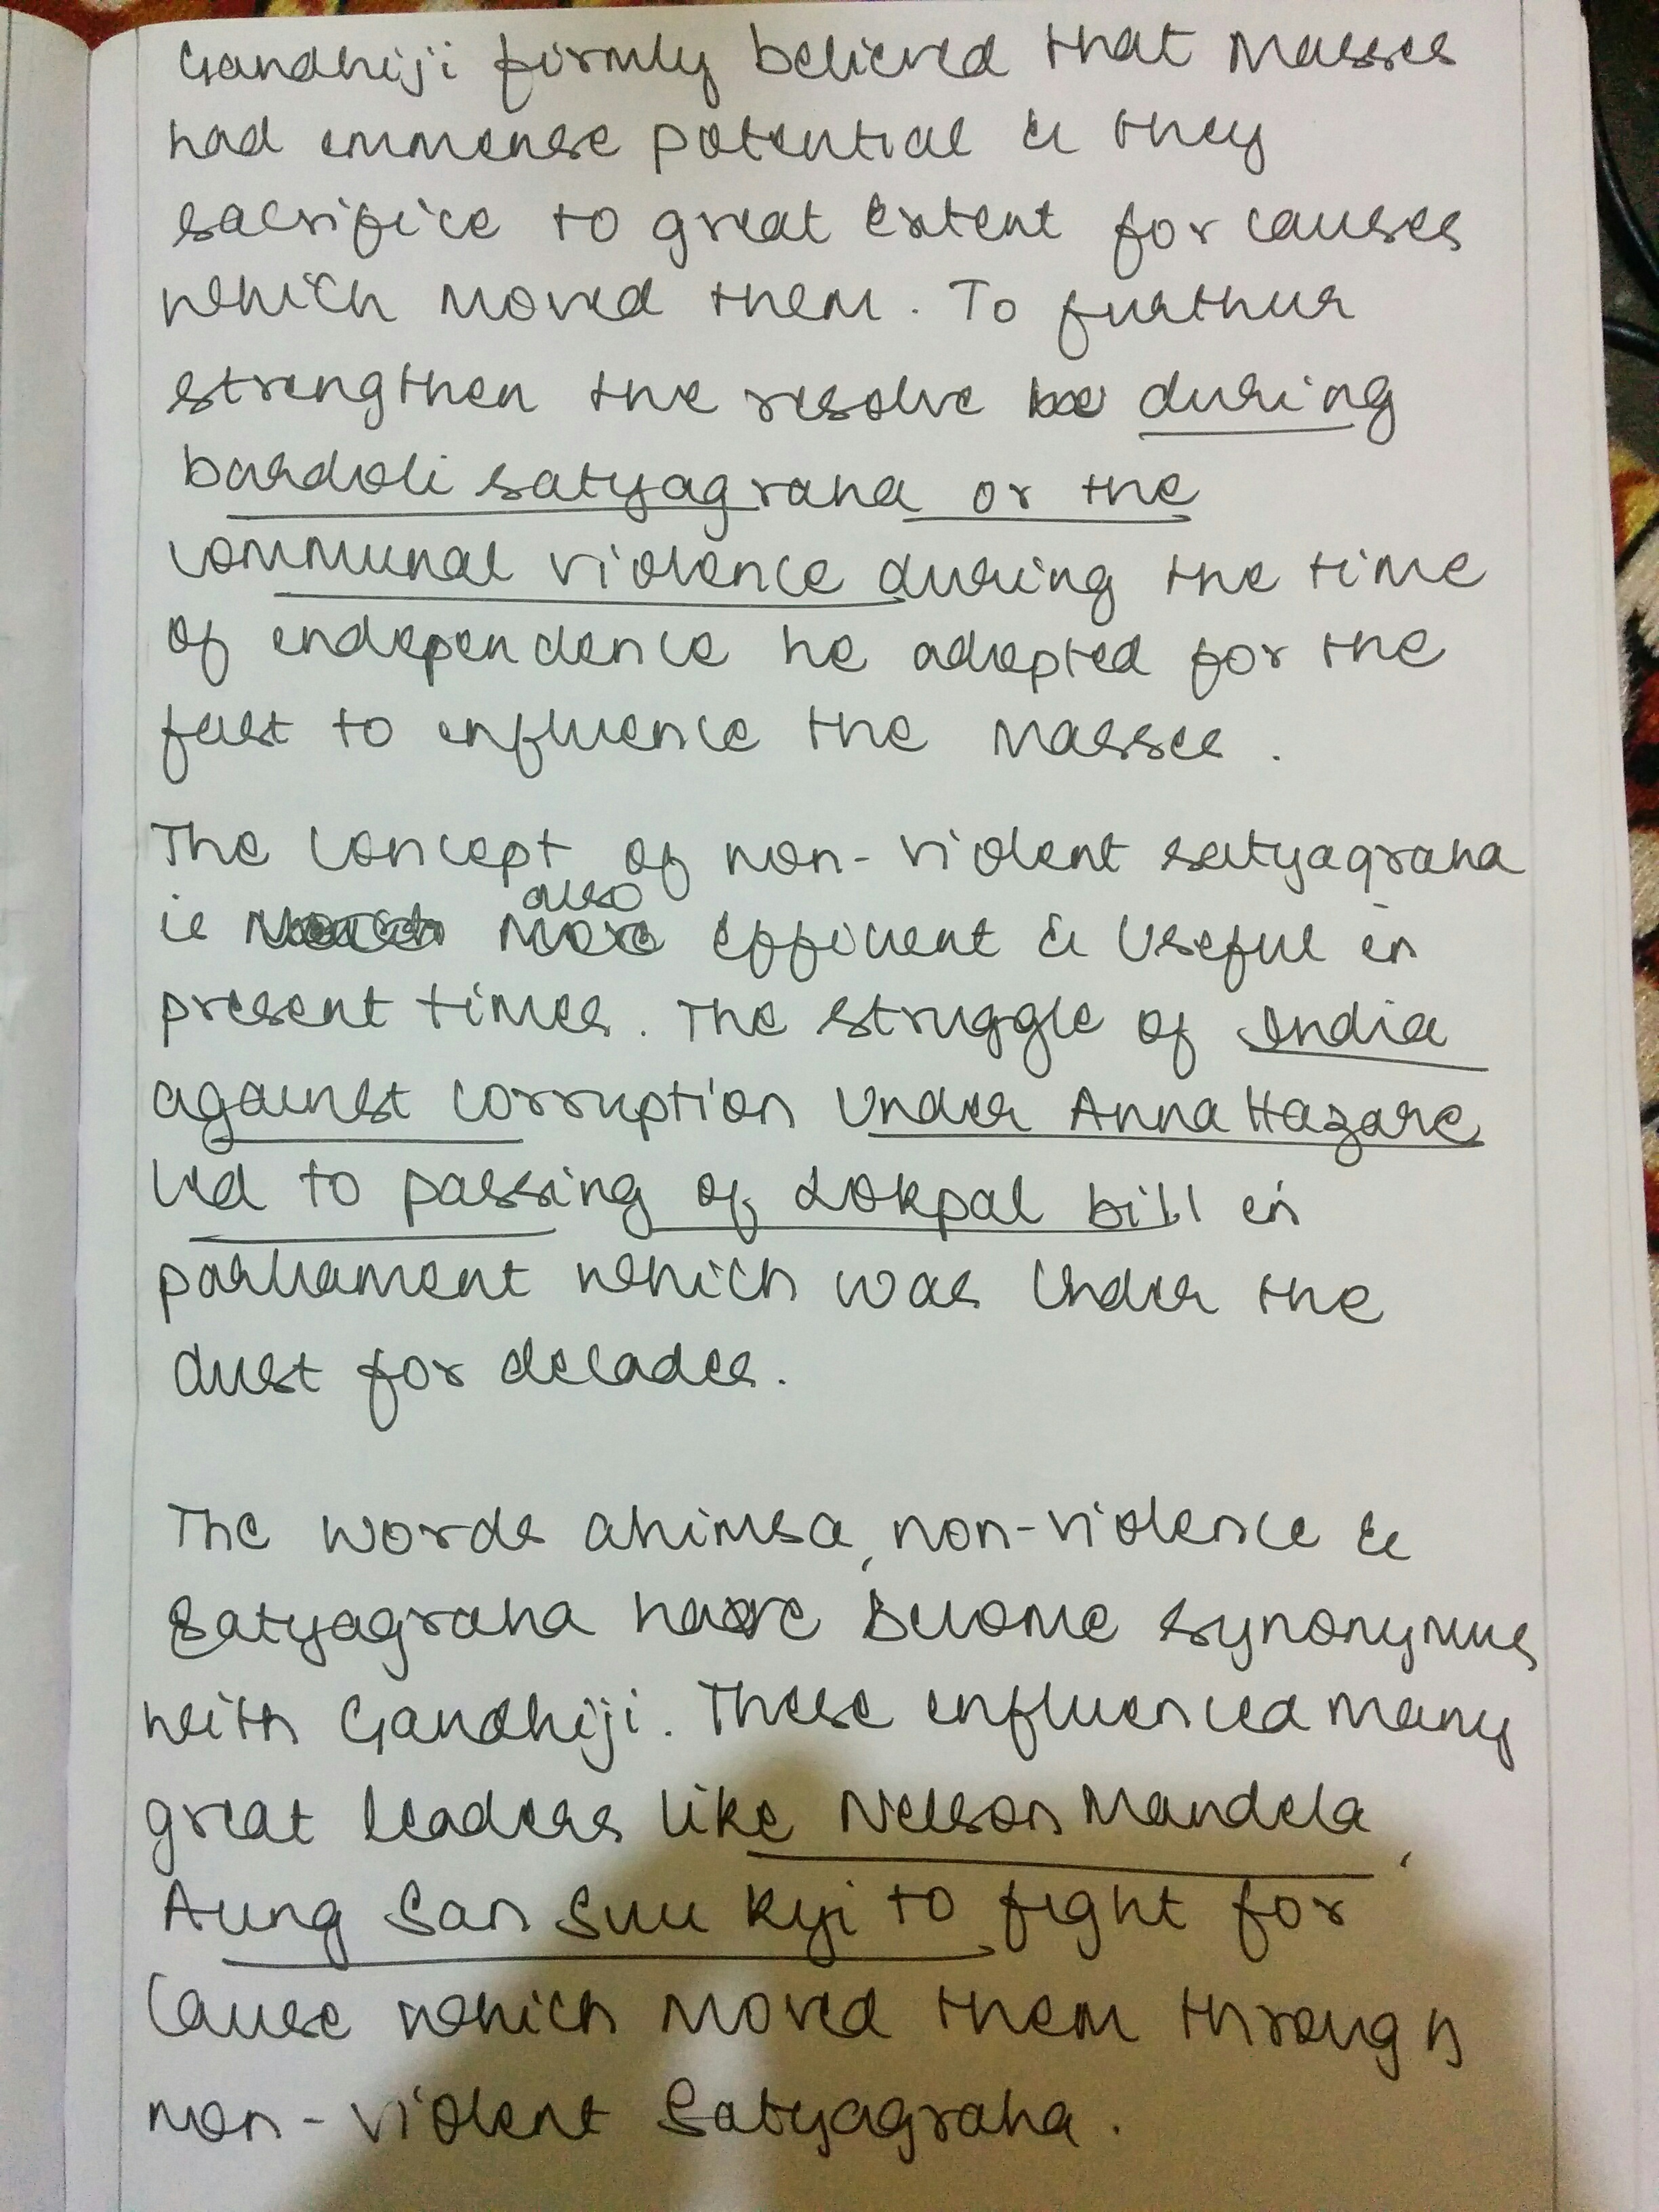 Gandhiji firmly believed that Masses
had immense potential & they
sacrifice to great extent for causes
which moved them. To furthur
strengthen the resolve during
bardoli satyagraha or the
communal violence during the time
of independence he adopted for the
fast to influence the masses.
The concept of non-violent satyagraha
is also more efficient & Useful in
present times. The struggle of India
against corruption Under Anna Hazare
led to passing of Lokpal bill in
parliament which was Under the
dust for decades.
The words ahimsa, non-violence &
Satyagraha have become synonymus
with Gandhiji. These influenced many
great leaders like Nelson Mandela,
Aung San Suu Kyi to fight for
cause which moved them through
non-violent Satyagraha.